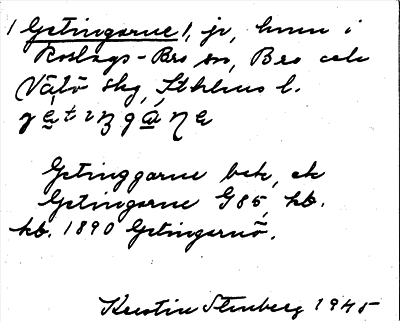 /Getingarne/, jo, hmn i
Roslags-Bro sn, Bro och
Vätö skg, Sthlms l.
Getinggarne bek, ek
Getingarne G85, hb.
kb. 1890 Getingarnö.
Kerstin Stenberg 1945